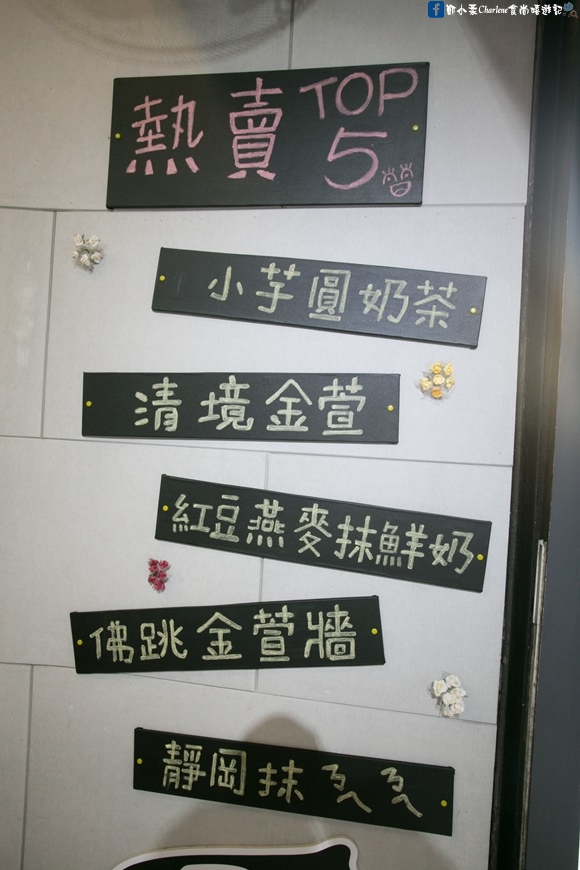 鄭小柔Charlene食尚嬉遊記
熱賣 TOP 5
小芋圓奶茶
清境金萱
紅豆燕麥抹鮮奶
佛跳金萱牆
靜岡抹ㄋㄟㄋㄟ